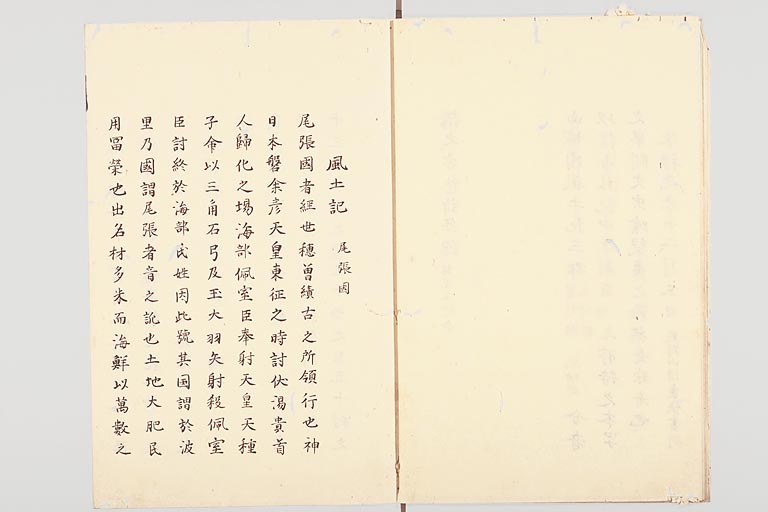 風土記 尾張国
尾張國者經世穗曽績古之所領行也神
日本磐余彦天皇東征之時討伏湯貴首
人歸化之場海部佩室臣奉射天皇天種
子命以三角石弓及玉大羽矢射殺佩室
臣討終於海部氏姓因此號其国謂於波
里乃國謂尾張者音之訛也土地大肥民
用冨榮也出名材多米而海鮮以萬數之